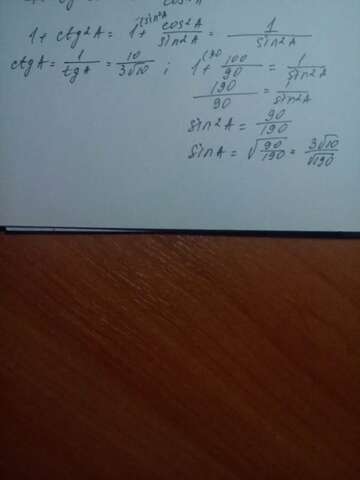 1 + ctg²A = 1 + (sin²A cos²A/sin²A = 1/sin²A
ctgA = 1/tgA = 10/3√10 ; 1 + (90 100/90 = 1/sin²A
190/90 = 1/sin²A
sin²A = 90/190
sinA = √90/190 = 3√10/√190